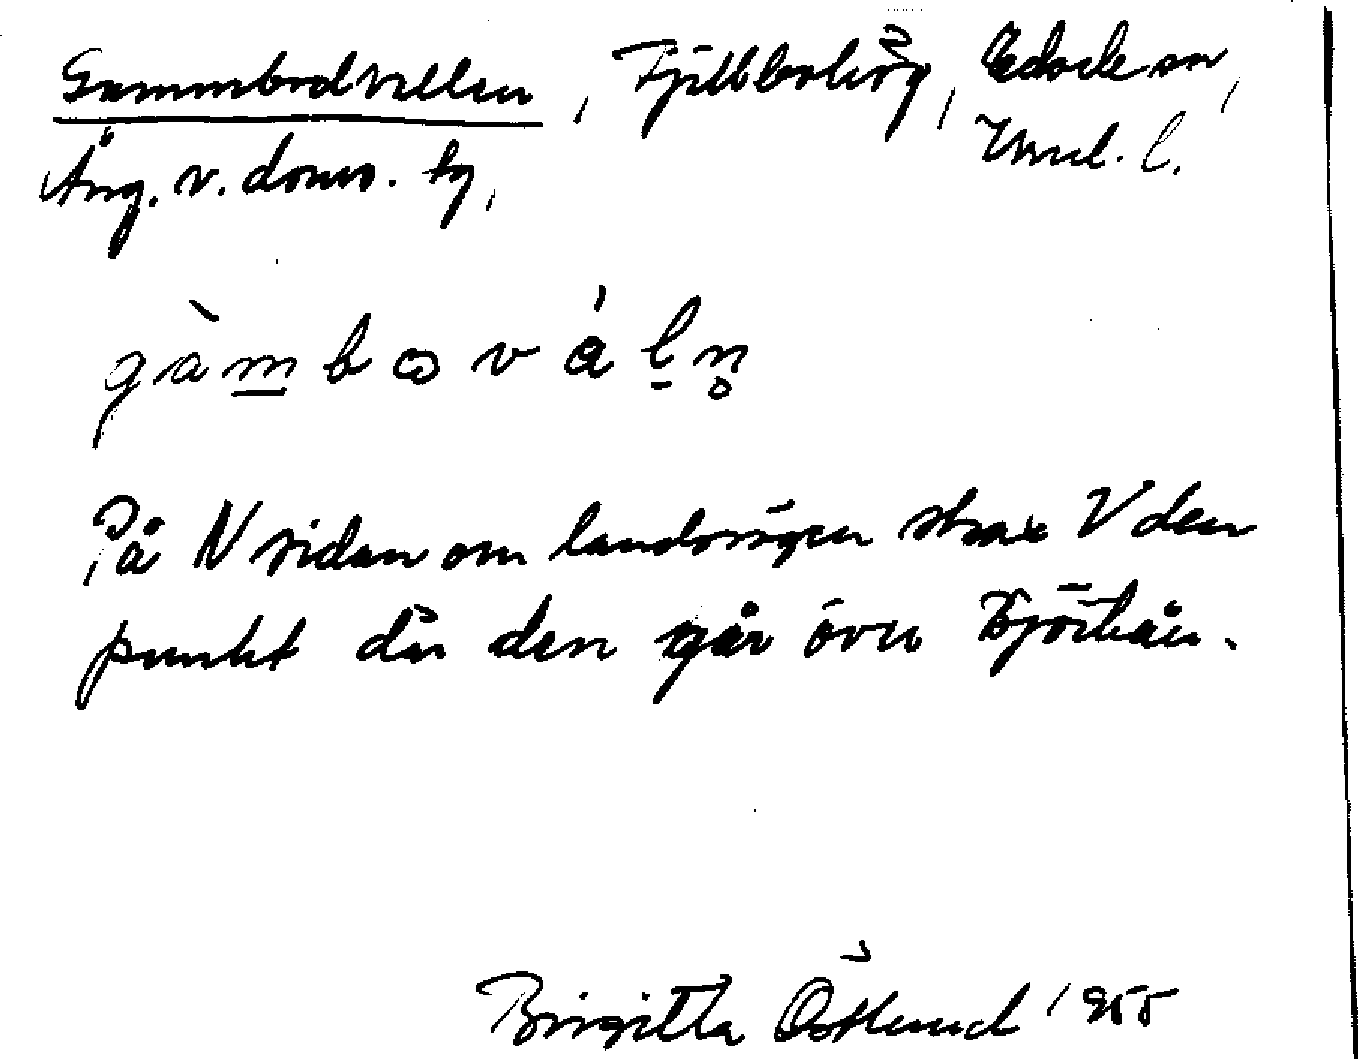 Gammbodvallen, Fjällboberg, Edsele sn,
Ång. v. doms. tg, Vnrl. l.
gàmbωválṇ
På N sidan om landsvägen strax V den
punkt där den går över Björkån.
Birgitta Östlund 1955